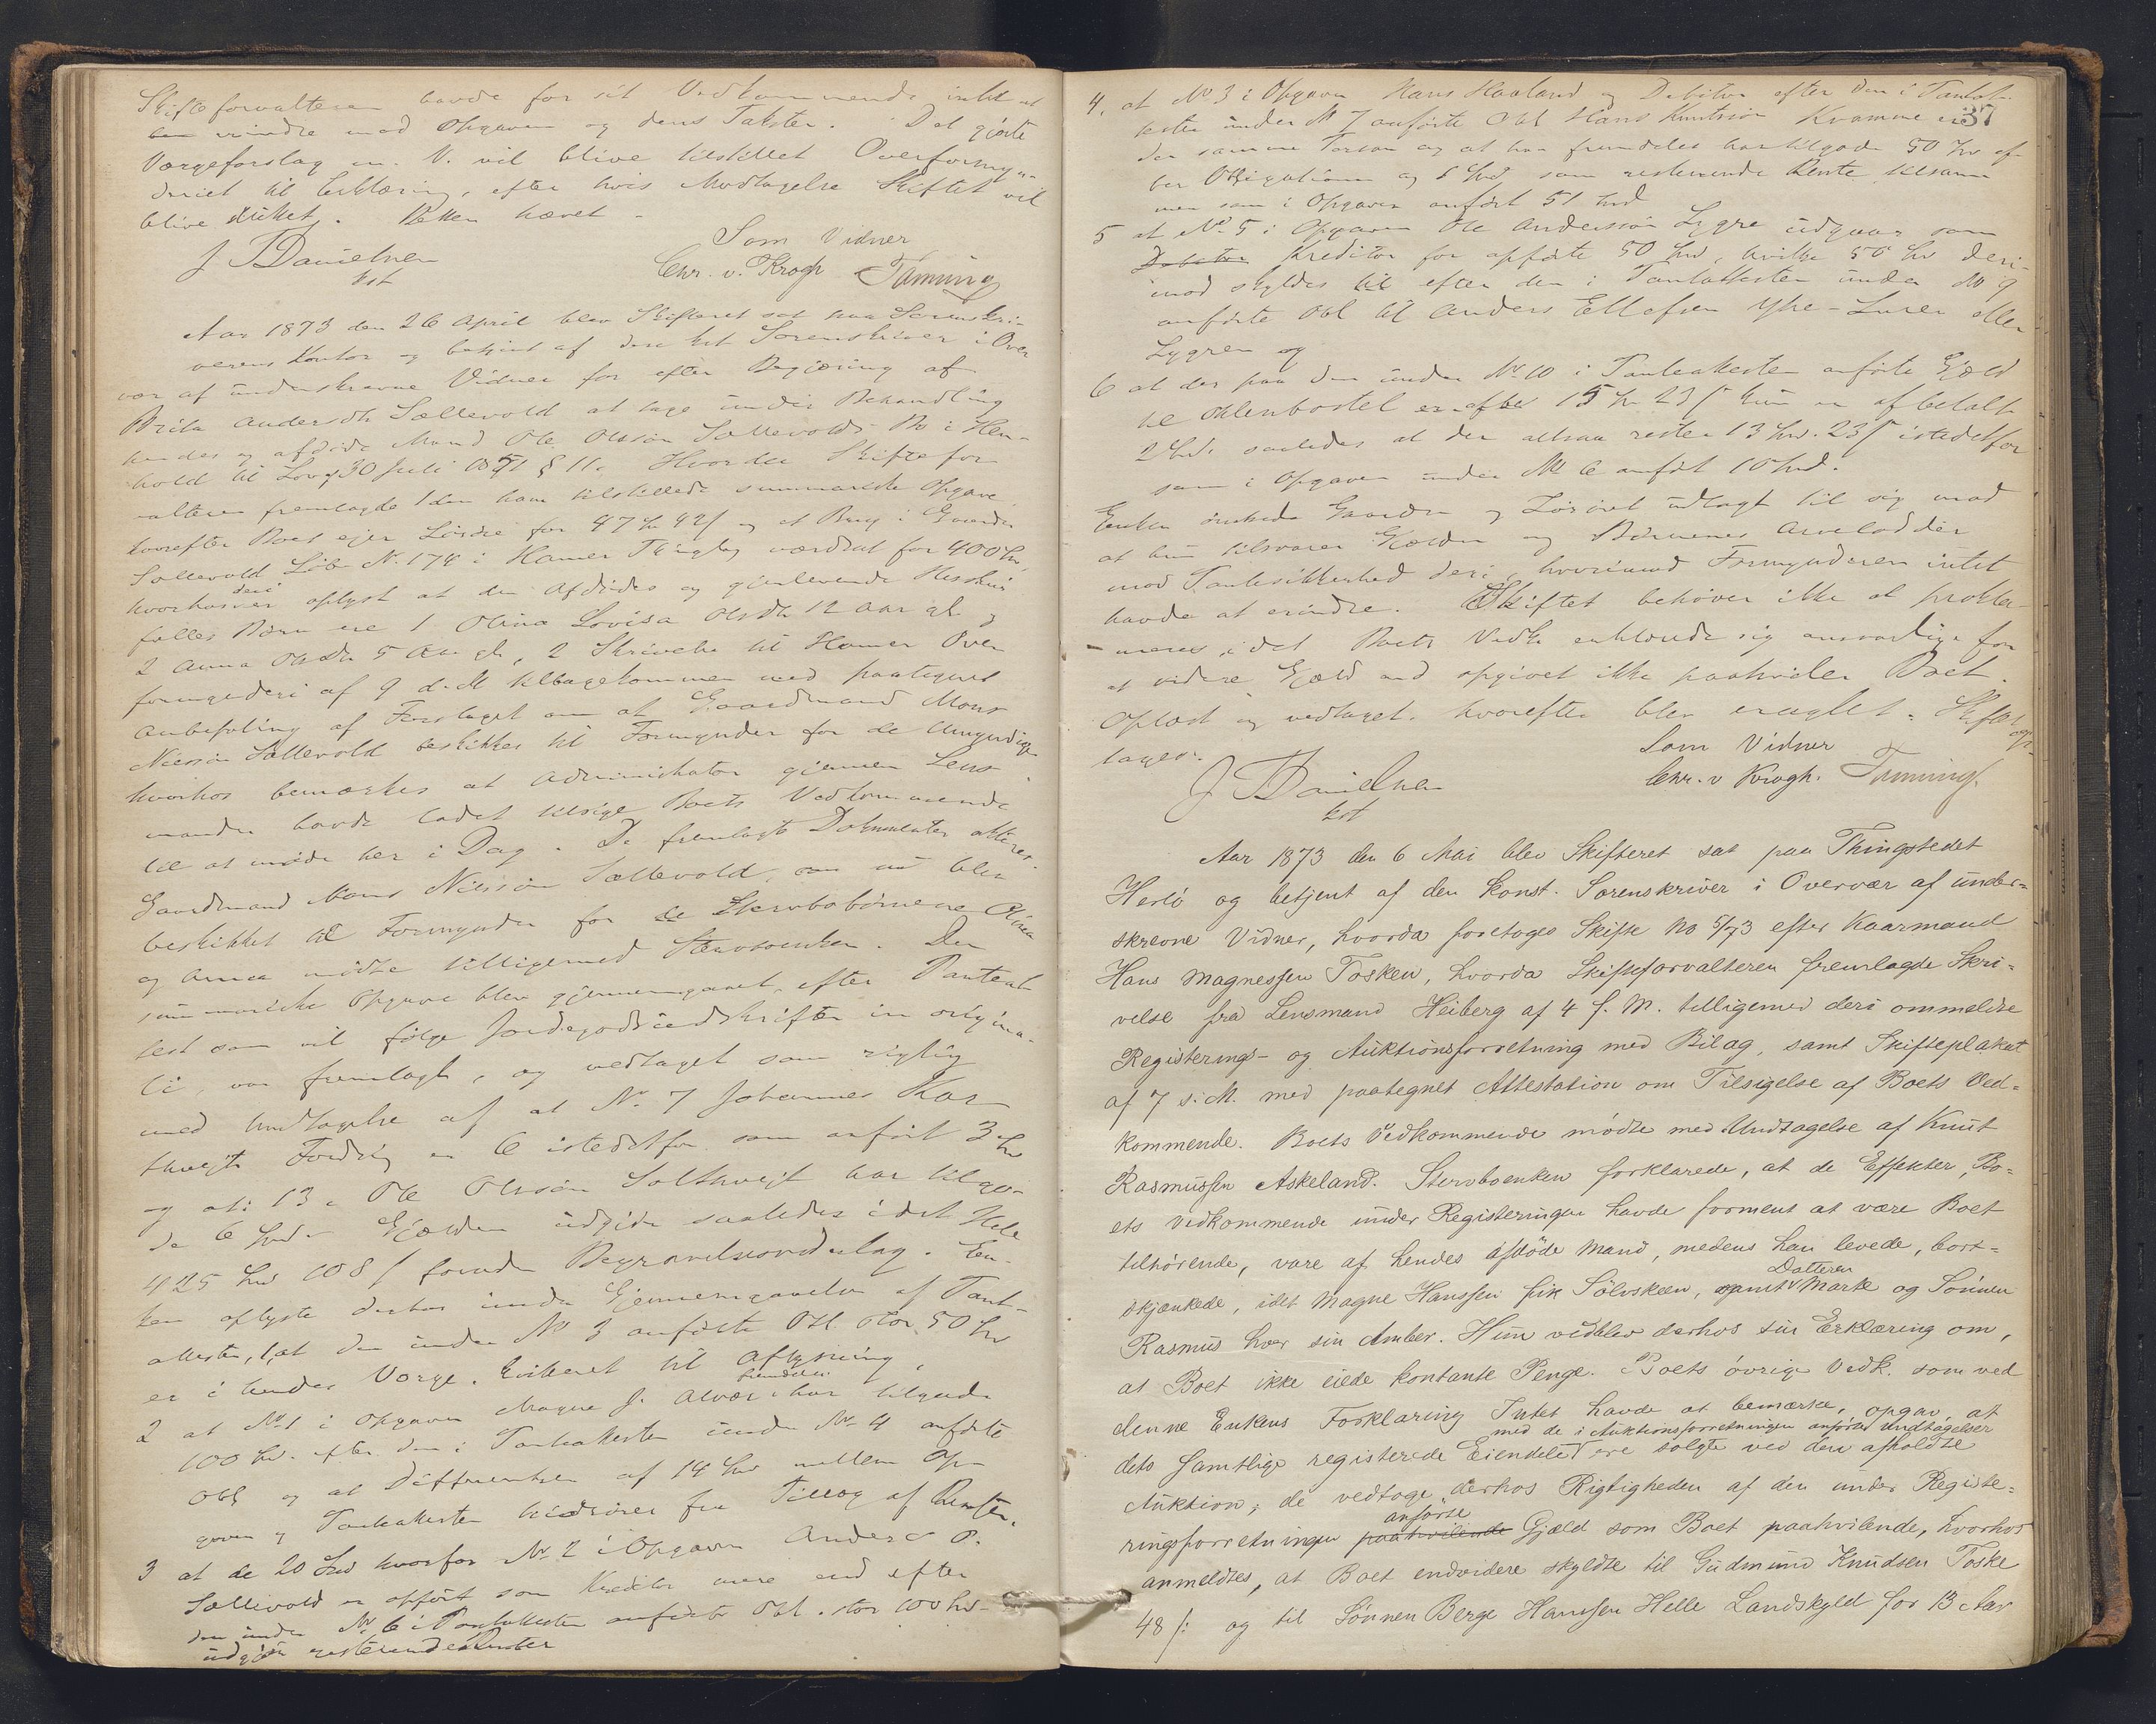 Skifteforvalteren havde for sit Vedkommende intet at
erindre mod Opgaven og dens Takster. Det gjorte
Værgeforslag vil blive tilstillet Overformyn-
deriet til Erklæring, efter hvis Modtagelse Skiftet vil
blive sluttet. Retten hævet
J Danielsen
kst
Som Vidner
Chr. v. Krogh Tanning
Aar 1873 den 26 April blev Skifteret sat paa Sorenskri-
verens Kontor og betjent af den kst Sorenskriver i Over
vær af underskrevne Vidner for efter Begjæring af
Brita Andersdtr Sællevold at tage under Behandling
hendes og afdøde Mand Ole Olsson Sællevolds Bo i Hen-
hold til Lov 30 Juli 1851 § 11. Hvorda Skiftefor-
valteren fremlagde den ham tilstillede summariske Opgave
hvorefter Boet ejer Løsøre for 47 Sp 42 s og et Brug i Gaarden
Sællevold Løbe N. 174 i Hamer Thinglag værdsat for 400 Sp,
hvorhos deri er oplyst at den Afdødes og gjenlevende Hustrus
fælles Børn ere 1 Olina Lovisa Olsdtr 12 Aar gl. og
2 Anna Olsdtr 5 Aar gl, 2 Skrivelse til Hamer Over
formynderi af 9 d. M tilbagekommen med paategnet
Anbefaling af Forslaget om at Gaardmand Mons
Nilsson Sællevold beskikkes til Formynder for de Umyndige
hvorhos bemærkes at Administrator gjennem Lens
manden havde ladet tilsige Boets Vedkommende
til at møde her i Dag. De fremlagte Dokumenter akteres.
Gaardmand Mons Nilsson Sællevold, som nu blev
beskikket til Formynder for de Stervbobørnene Olina
og Anna mødte tilligemed Stervboenken. Den
summariske Opgave blev gjennemgaaet efter Panteat-
test som vil følge Jordegodsudskriften in origina-
li, var fremlagt, og vedtaget som rigtig
med Undtagelse af at No 7 Johannes
Fordring er 6 istedetfor som anført 3 Sp
og at 13. Ole Olsson Solthveit har tilgo-
de 6 Spd. Gjælden udgjør saaledes i det Hele
425 Spd 108 s foruden Begravelsesvederlag. En-
ken oplyste derhos under Gjennemgaaelsen af Pant-
attesten, 1, at den under No 3 anførte Obl. stor 50 Sp
er i hendes Værge, kvitteret til Aflysning,
2 at No 1 i Opgaven Magne J. Alvær fremdeles har tilgode
100 Sp. efter den i Panteattesten under No 4 anførte
Obl og at Differentsen af 14 Spd mellem Op-
gaven og Panteattesten hidrører fra Tillæg af Renter.
3 at de 20 Spd hvorfor No 2 i Opgaven Anders O.
Sællevold er opført som Kreditor mere end efter
den under No 6 i Panteattesten anførte Obl. stor 100 Spd
udgjør resterende Renter
37
4, at No 3 i Opgaven Hans Haaland og Debitor efter den i Panteat-
testen under No 7 anførte Obl Hans Knutsson Kvamme er
den samme Person og at han fremdeles har tilgode 50 Sp ef-
ter Obligationen og 1 Spd som resterende Rente tilsam
men som i Opgaven anført 51 Spd
5 at No 5 i Opgaven Ole Andersson Lygre udgaar som
Debitor Kreditor for opførte 50 Spd, hvilke 50 Sp deri-
mod skyldes til efter den i Panteattesten under No 9
anførte Obl til Anders Ellefsen Ytre-Luren eller
Lygren og
6 at der paa den under No 10 i Panteattesten anførte Gjæld
til Oklenbostel 15 Sp 23 s kun er afbetalt
2 Spd. saaledes at der altsaa rester 13 Spd. 23 s istedetfor
som i Opgaven under No 6 anført 10 Spd.
Enken ønskede Gaarden og Løsøret udlagt til sig mod
at hun tilsvarer Gjælden og Børnenes Arvelodder
mod Pantesikkerhed deri, hvorimod Formynderen intet
havde at erindre. Skiftet behøver ikke at prokla-
meres, idet Boets Vedk. erklærede sig ansvarlige for
at videre Gjæld end opgivet ikke paahviler Boet.
Oplæst og vedtaget. hvorefter blev eragtet: Skiftet op-
tages.
J Danielsen
kst
Som Vidner
Chr. v Krogh. Tanning
Aar 1873 den 6 Mai blev Skifteret sat paa Thingstedet
Herlø og betjent af den konst. Sorenskriver i Overvær af under-
skrevne Vidner, hvorda foretoges Skifte No 5/73 efter Kaarmand
Hans Magnessen Tosken, hvorda Skifteforvalteren fremlagde Skri-
velse fra Lensmand Heiberg af 4 f. M. tilligemed deri ommeldte
Registerings- og Auktionsforretning med Bilag, samt Skifteplakat
af 7 s. M. med paategnet Attestation om Tilsigelse af Boets Ved-
kommende. Boets Vedkommende mødte med Undtagelse af Knut
Rasmussen Askeland. Stervboenken forklarede, at de Effekter, Bo-
ets Vedkommende under Registeringen havde forment at være Boet
tilhørende, vare af hendes afdøde Mand, medens han levede, bort-
skjænkede, idet Magne Hanssen fik Sølvskeen, samt Datteren Marte og Sønnen
Rasmus hver sin Amber. Hun vedblev derhos sin Erklæring om,
at Boet ikke eiede kontante Penge. Boets øvrige Vedk. som ved
denne Enkens Forklaring Intet havde at bemærke, opgav, at
dets samtlige registerede Eiendele med de i Auktionsforretningen anførte Undtagelser ere solgte ved den afholdte
Auktion; de vedtoge derhos Rigtigheden af den under Registe-
ringsforretningen paahvilende anførte Gjæld som Boet paahvilende, hvorhos
anmeldtes, at Boet endvidere skyldte til Gudmund Knudsen Toske
48 s: og til Sønnen Berge Hanssen Helle Landskyld for 13 Aar